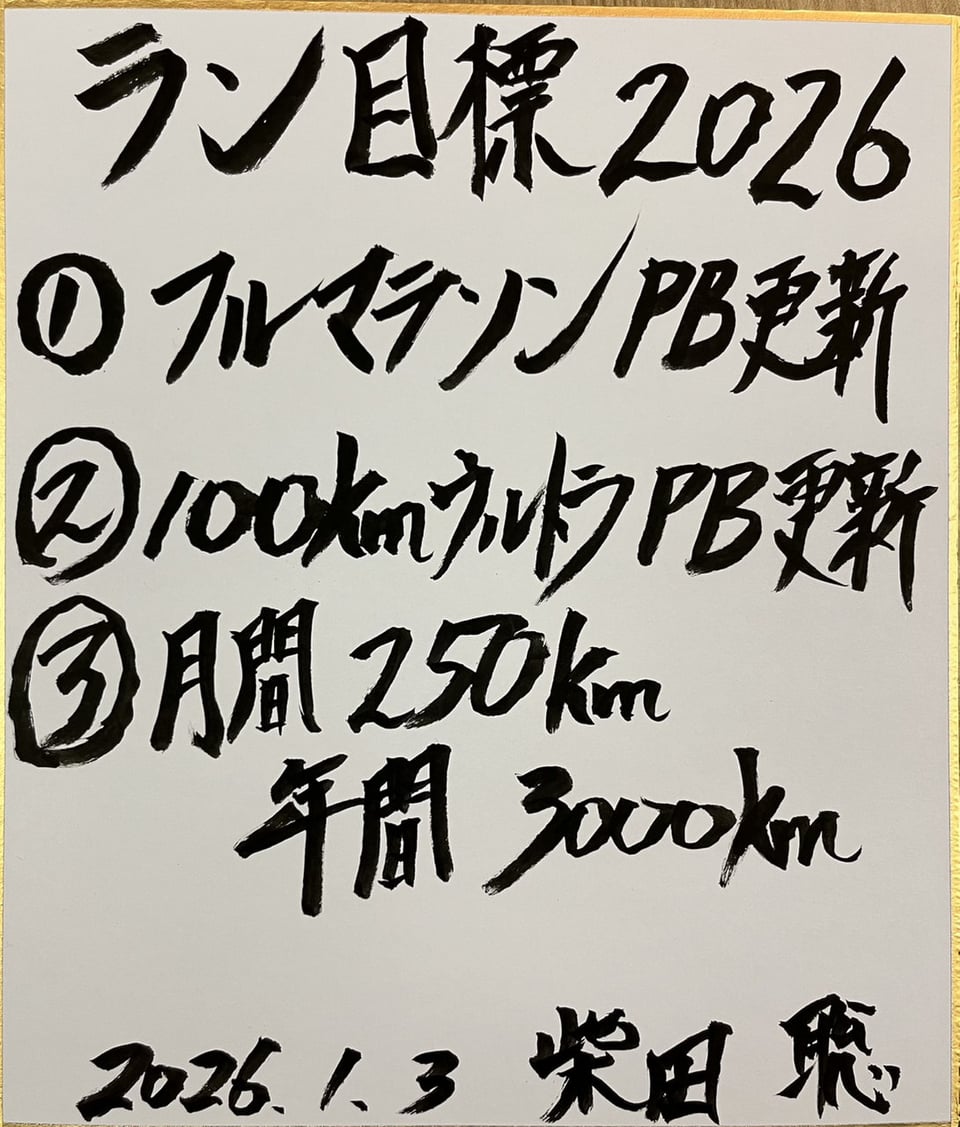 ラン目標2026
① フルマラソンPB更新
② 100kmウルトラPB更新
③ 月間 250km
年間 3000km
2026.1.3 柴田 聡